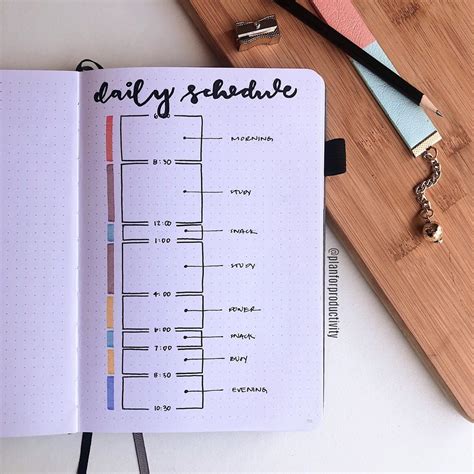 daily schedule
6:00
MORNING
8:30
STUDY
12:00
SNACK
1:00
STUDY
4:00
POWER
6:00
SNACK
7:00
BUSY
8:30
EVENING
10:30
@planforproductivity